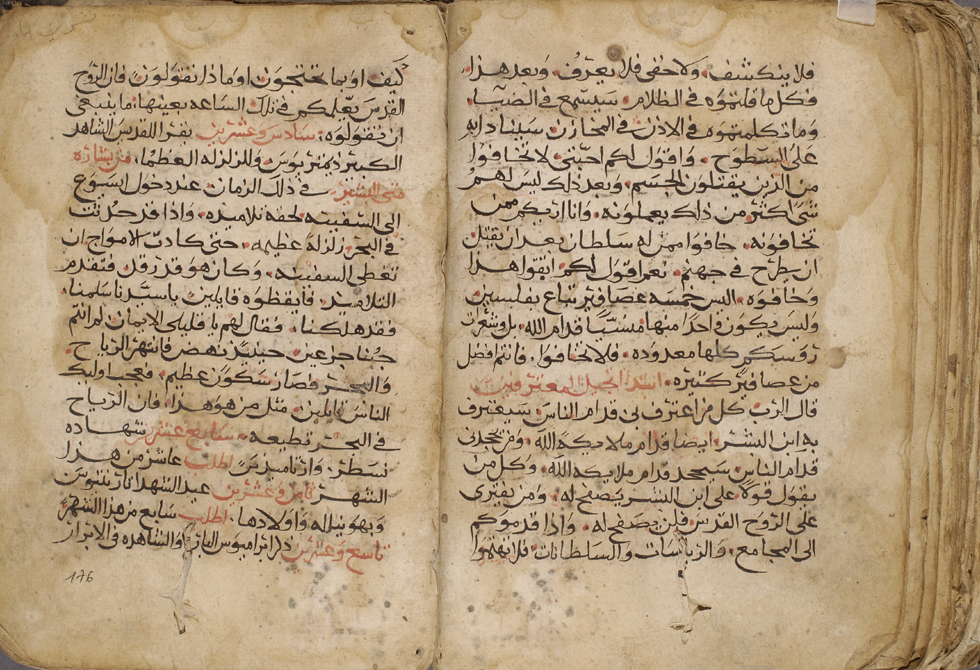 فلا ينكشف ولا خفى فلا يعرف وبعد هذا
فكل ما قلتموه في الظلام سيسمع في الضيا
وما تكلمتموه في الاذن في المخازن سينادا به
على السطوح واقول لكم احبتي لا تخافوا
من الذين يقتلون الجسم وبعد ذلك ليس لهم
شيا كثر من ذلك يعملونه وانا اريكم ممن
تخافونه خافوا ممن له سلطان بعد ان يقتل
ان يطرح في جهنم نعم اقول لكم اتقوا هذا
وخافوه اليس خمسه عصافير تباع بفلسين
وليس يكون واحدا منها مسيبا قدام الله بل وشعرات
رؤسكم كلها معدوده فلا تخافوا فانتم افضل
من عصافير كثيره ابتدا انجيل المعترفين
قال الرب كل من اعترف بي قدام الناس سيعترف
به ابن البشر ايضا قدام ملايكه الله ومن يجحدني
قدام الناس سيجحد قدام ملايكه الله وكل من
يقول قولا على ابن البشر يصفح له ومن يفتري
على الروح القدس فلن يصفح له واذا قدموكم
الى المجامع والرياسات والسلطانات فلا تهتموا
كيف او بما تحتجون او ماذا تقولون فان الروح
القدس يعلمكم في تلك الساعه بعينها ما ينبغي
ان تقولوه سادس وعشرين يقرا للقديس الشاهد
الكبير ديمتريوس وللزلزله العظما من بشاره
متى البشير في ذلك الزمان عند دخول ايسوع
الى السفينه لحقه تلاميذه واذا قد حدثت
في البحر زلزله عظيمه حتى كادت الامواج ان
تغطي السفينه وكان هو قد رقد فتقدم
التلاميذ فايقظوه قايلين يا سيدنا سلمنا
فقد هلكنا فقال لهم يا قليلي الايمان لم انتم
جبنا جزعين حينيذ نهض فانتهر الرياح
والبحر فصار سكون عظيم فعجب اوليك
الناس قايلين مثل من هو هذا فان الرياح
في البحر تطيعه سابع وعشرين شهاده
نسطر اطلب عاشر من هذا
الشهر ثامن وعشرين عيد الشهدا
واولادها اطلب سابع من هذا الشهر
تاسع وعشرين ذكر ابراميوس البار والشاهده في الابرار
176